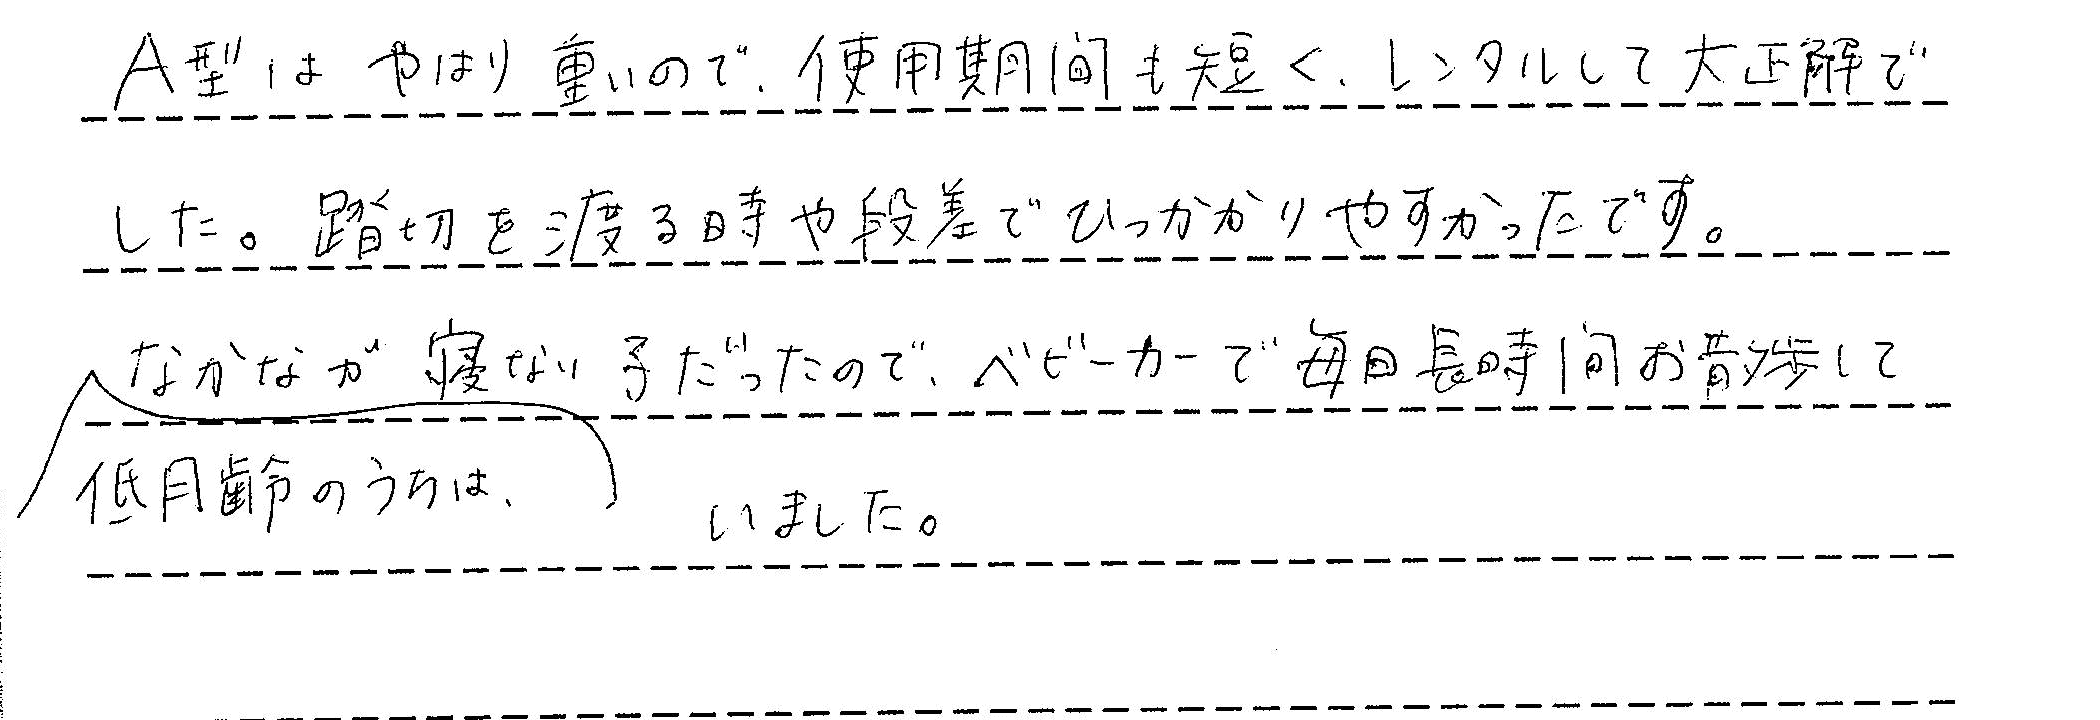 A型は やはり 重いので、使用期間も短く、レンタルして大正解で
した。踏切を渡る時や段差でひっかかりやすかったです。
なかなか 寝ない子だったので、ベビーカーで毎日長時間お散歩して
低月齢のうちは、
いました。